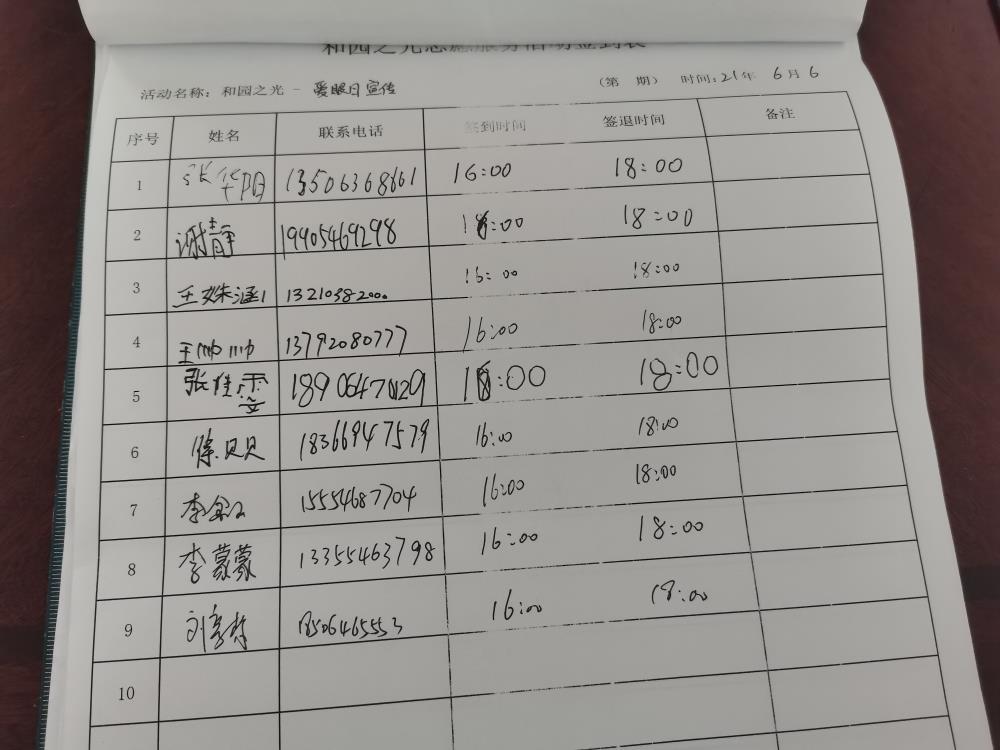 和园之光志愿服务活动签到表
活动名称：和园之光 - 爱眼日宣传 （第 期） 时间：21年 6月6
序号 姓名 联系电话 签到时间 签退时间 备注
1 张华阳 13506368661 16:00 18:00
2 谢静 19905469298 16:00 18:00
3 王姝涵 13210382000 16:00 18:00
4 王帅帅 13792080777 16:00 18:00
5 张佳雯 18906470129 18:00
6 徐贝贝 18366947579 16:00 18:00
7 李 15554687704 16:00 18:00
8 李蒙蒙 13355463798 16:00 18:00
9 刘 18506465553 16:00 18:00
10